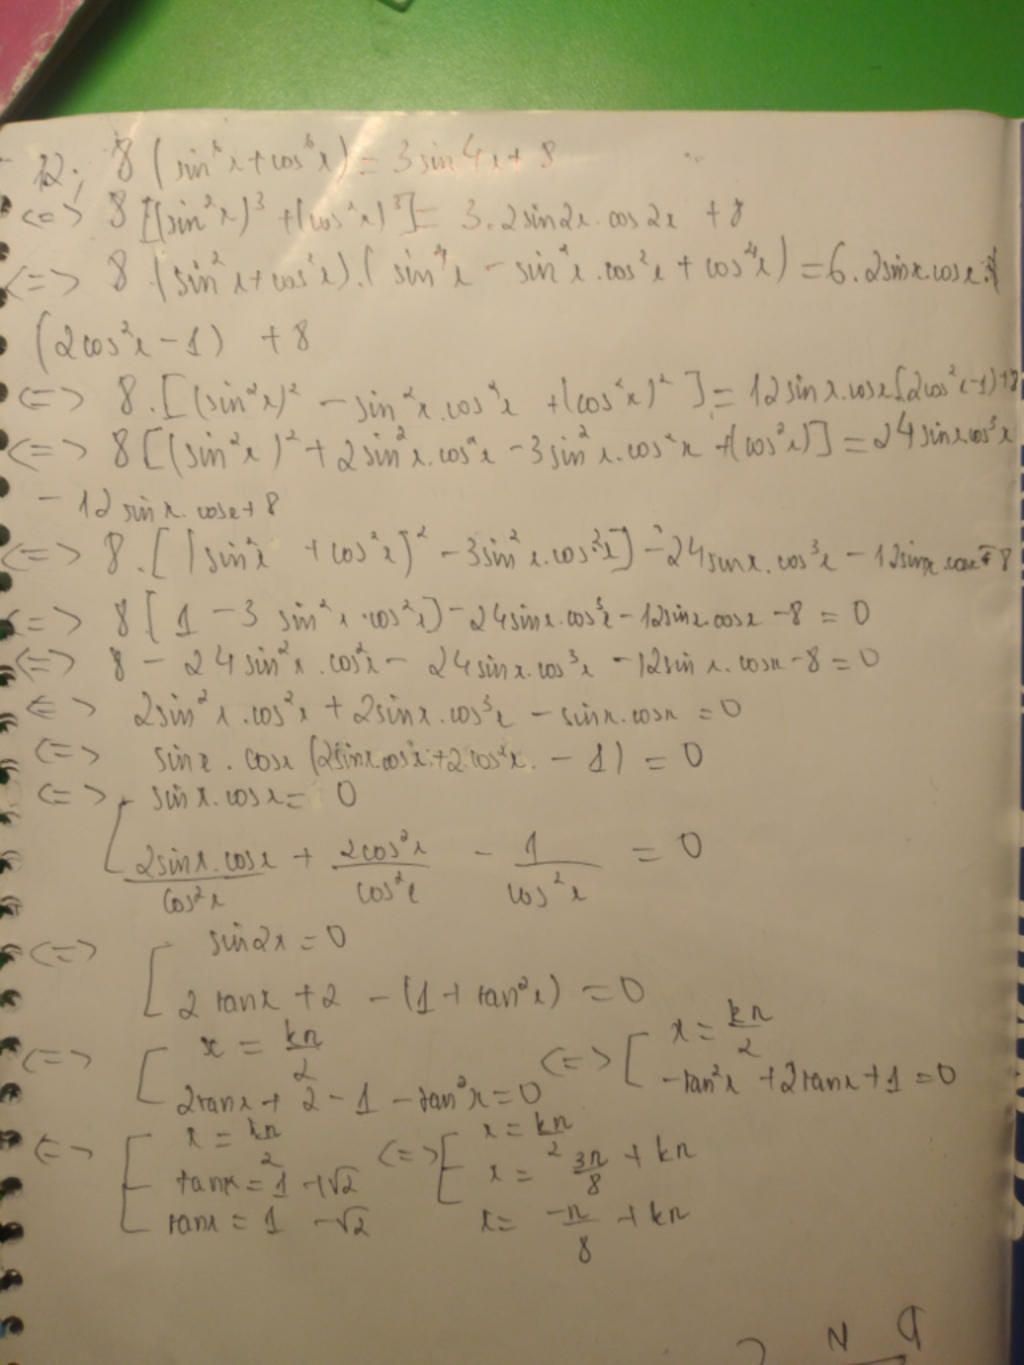 12; 8 (sin⁶x + cos⁶x) = 3 sin4x + 8
<=> 8 [(sin²x)³ + (cos²x)³] = 3.2sin2x.cos2x + 8
<=> 8 (sin²x + cos²x).(sin⁴x - sin²x.cos²x + cos⁴x) = 6.2sinx.cosx.
(2cos²x - 1) + 8
<=> 8.[(sin²x)² - sin²x.cos²x + (cos²x)²] = 12sinx.cosx(2cos²x-1)+8
<=> 8[(sin²x)² + 2sin²x.cos²x - 3sin²x.cos²x + (cos²x)] = 24sinxcos³x
- 12 sinx.cosx + 8
<=> 8.[(sin²x + cos²x)² - 3sin²x.cos²x] - 24sinx.cos³x - 12sinx.cosx - 8
<=> 8[1 - 3 sin²x.cos²x] - 24sinx.cos³x - 12sinx.cosx - 8 = 0
<=> 8 - 24sin²x.cos²x - 24sinx.cos³x - 12sinx.cosx - 8 = 0
<=> 2sin²x.cos²x + 2sinx.cos³x - sinx.cosx = 0
<=> sinx.cosx (2sinxcosx + 2cos²x - 1) = 0
<=> [ sinx.cosx = 0
2sinx.cosx/cos²x + 2cos²x/cos²x - 1/cos²x = 0
<=> [ sin2x = 0
2tanx + 2 - (1 + tan²x) = 0
<=> [ x = kπ/2 <=> [ x = kπ/2
2tanx + 2 - 1 - tan²x = 0 -tan²x + 2tanx + 1 = 0
<=> [ x = kπ/2 <=> [ x = kπ/2
tanx = 1 + √2 x = 3π/8 + kπ
tanx = 1 - √2 x = -π/8 + kπ